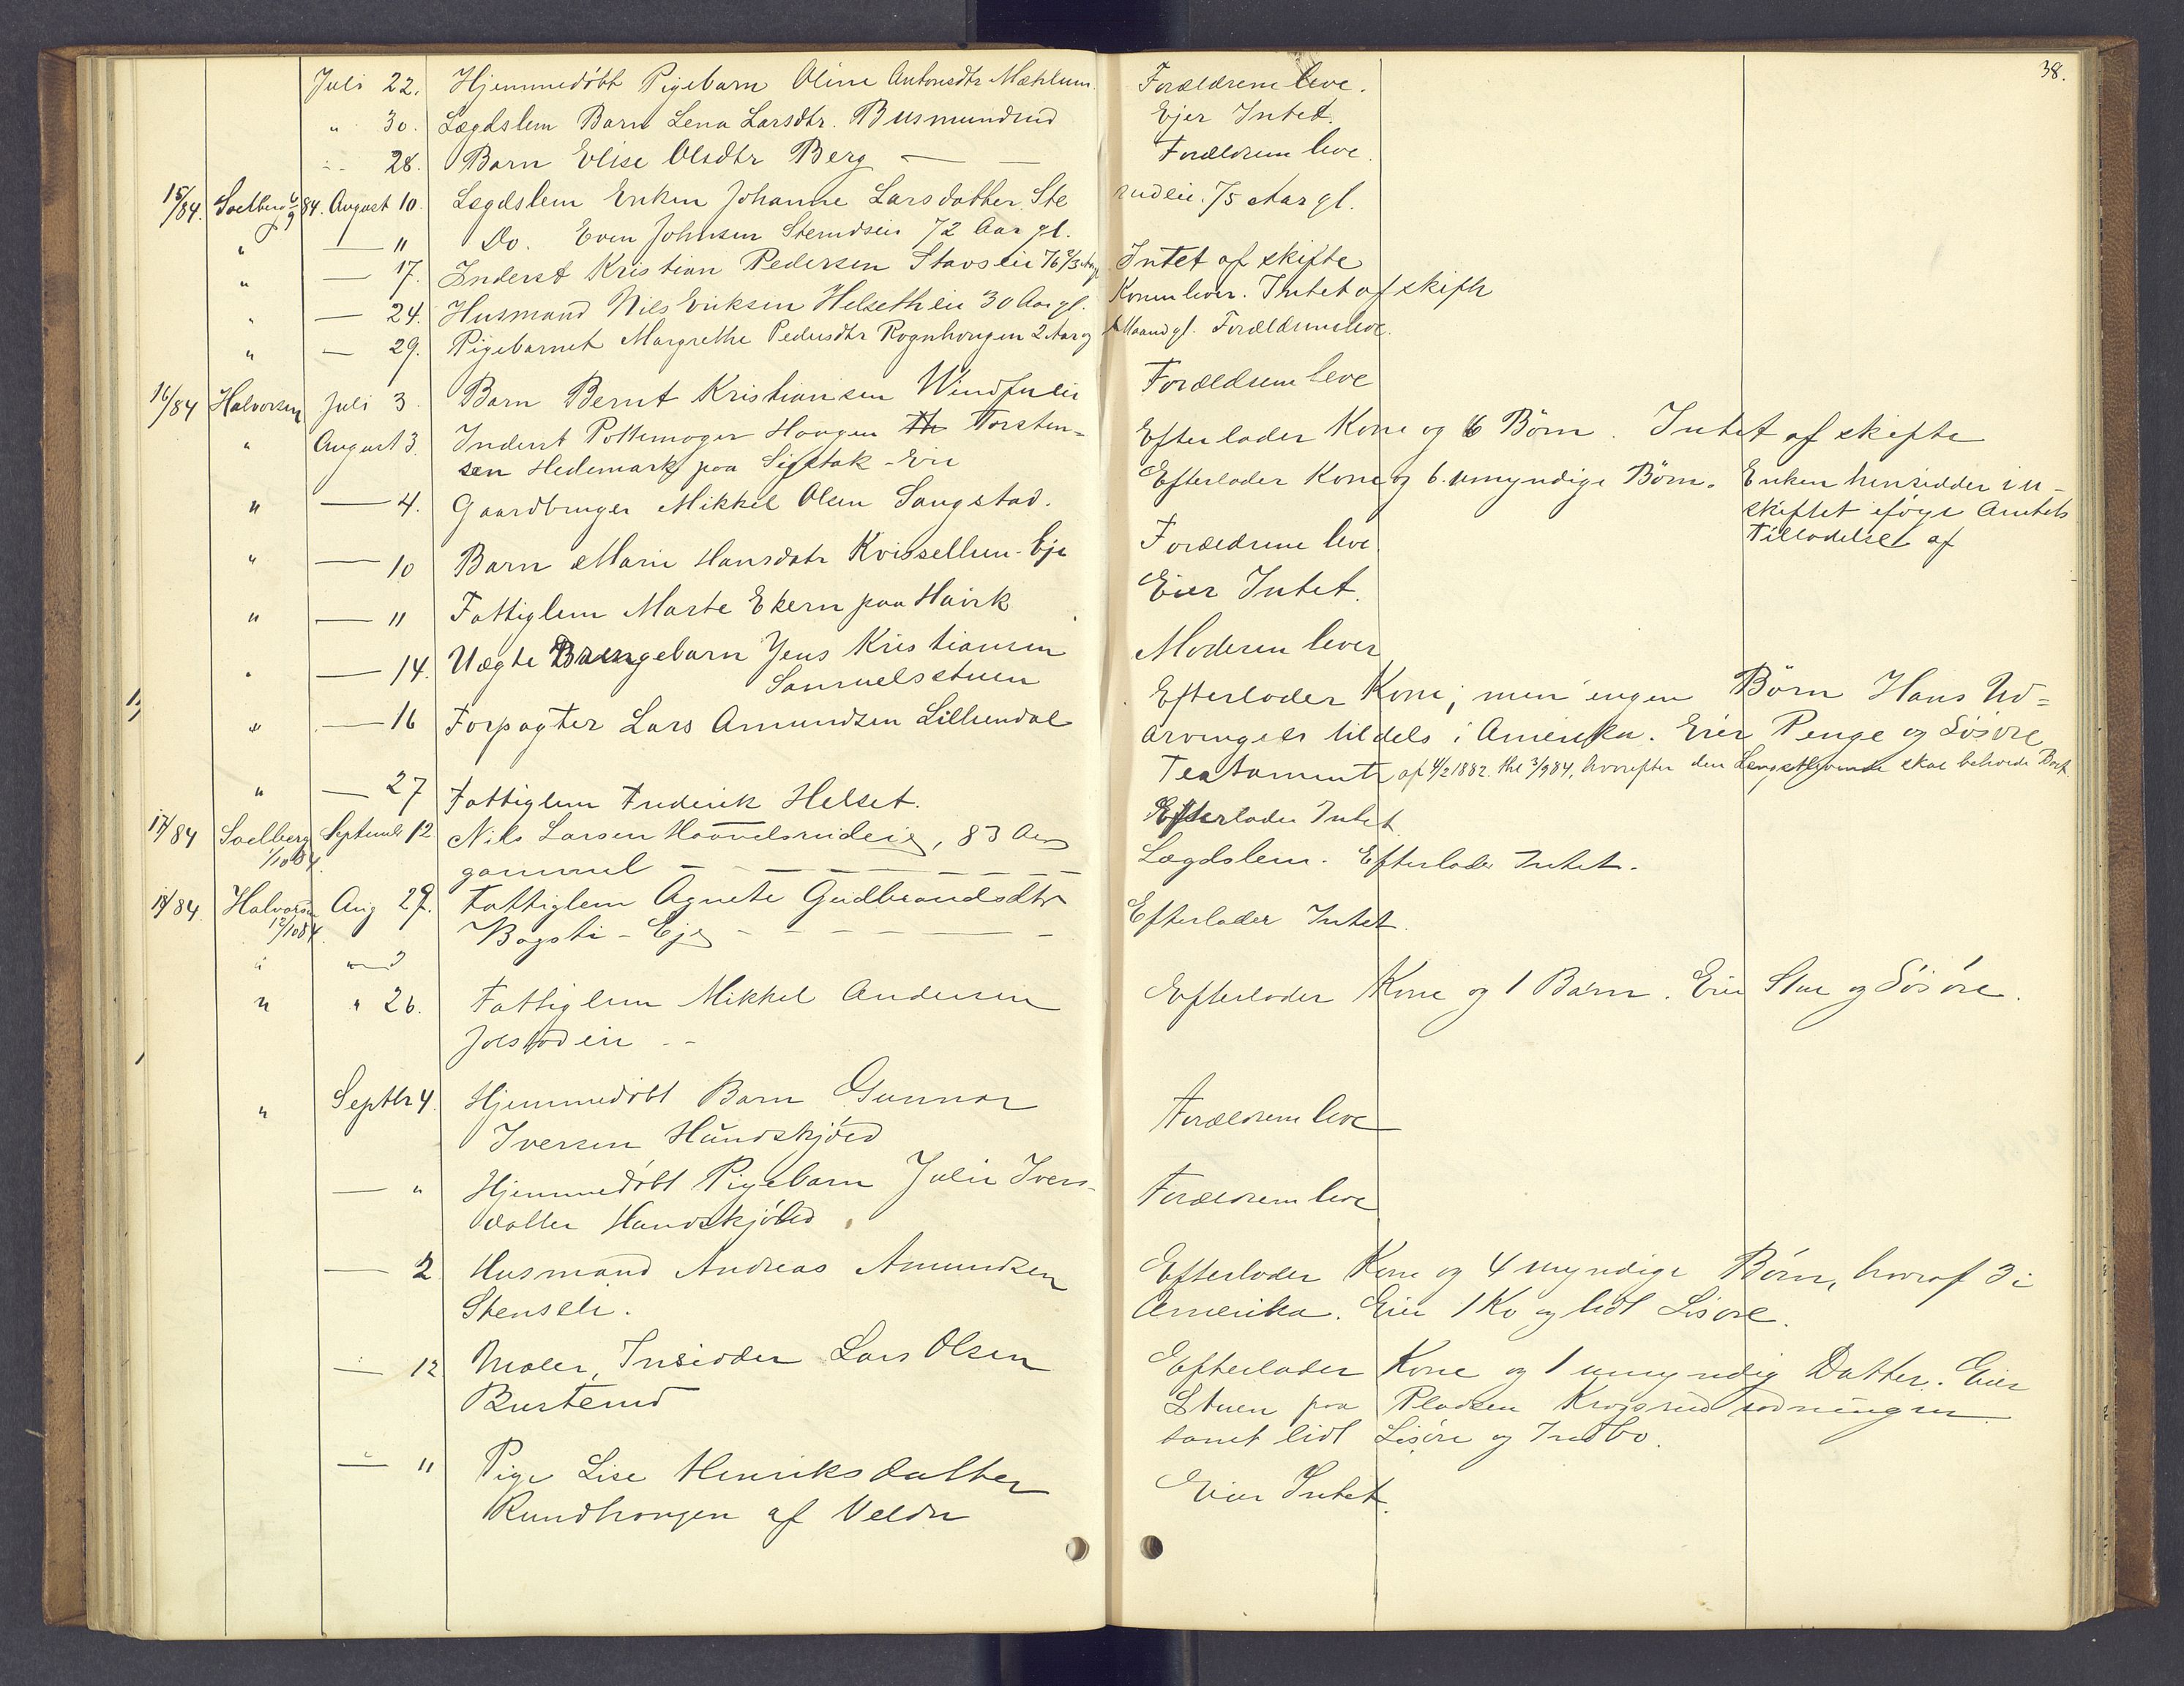 38.
Juli 22. Hjemmedöbt Pigebarn Oline Antonsdtr Mæhlum. Forældrene leve.
" 30. Lægdslem Barn Lena Larsdtr. Busmundrud Ejer Intet.
" 28. Barn Elise Olsdtr Berg — — Forældrene leve.
15/84. Soelberg 6/9 84. August 10. Lægdslem Enken Johanne Larsdatter Ste rudeie. 75 Aar gl.
" — " Do. Even Johnsen Stemdseie 72 Aar gl.
" — 17. Inderst Kristian Pedersen Stavseie 76 2/3 Intet af skifte
" — 24. Husmand Nils Eriksen Helsetheie 30 Aar gl. Konen lever. Intet af skifte
" — 29. Pigebarnet Margrethe Pedersdtr Rognhougen 2 Aar og Maand gl. Forældrene leve.
16/84 Halvorsen Juli 3. Barn Bernt Kristiansen Windju eie Forældrene leve
" August 3. Inderst Pottemager Haagen Th Torsten- Efterlader Kone og 6 Börn. Intet af skifte
sen Hedemark paa Sigstak-Eie
" — 4. Gaardbruger Mikkel Olsen Sangstad. Efterlader Kone og 6 umyndige Börn. Enken hensidder i u-
skiftet ifölge Amtets
Tilladelse af
" — 10 Barn Marie Hansdatr Kvissellun-Eje Forældrene leve.
" — " Fattiglem Marte Ekern paa Havik Eier Intet.
" — 14. Uægte Drengebarn Jens Kristiansen Moderen lever
Samuelsstuen
" — 16 Forpagter Lars Amundsen Lillundal Efterlader Kone; men ingen Börn Hans Ud=
arvinger tildels i Amerika. Eier Penge og Lösöre
Testamente af 4/2 1882. thl 3/9 84, hvorefter den Længstlevende skal beholde Boet.
" — 27 Fattiglem Frederik Helset. Efterlader Intet
17/84 Soelberg 1/10 84. Septembr 12. Nils Larsen Haavelsrudeie, 83 Aar Lægdslem. Efterlader Intet.
gammel — — — — —
18/84. Halvorsen 12/10 84. Aug 29. Fattiglem Agnete Gudbrandsdtr Efterlader Intet.
Bagsti-Eje — — — —
" " 26. Fattiglem Mikkel Andersen Efterlader Kone og 1 Barn. Eier Stue og Lösöre.
Jolstadeie --
" Septbr 4. Hjemmedöbt Barn Gunnar Forældrene leve
Iversen Hundskjöld
— " Hjemmedöbt Pigebarn Julie Ivers- Forældrene leve
datter Hundskjöld.
— 2 Husmand Andreas Amundsen Efterlader Kone og 4 myndige Börn, hvoraf 3 i
Stensli. Amerika. Eier 1 Ko og lidt Lösöre.
— 12 Maler, Insidder Lars Olsen Efterlader Kone og 1 umyndig Datter. Eier
Busterud Stuen paa Pladsen Krogsrudrodningen
samt lidt Lösöre og Indbo.
— " Pige Lise Henriksdatter Eier Intet.
Rundhougen af Veldre